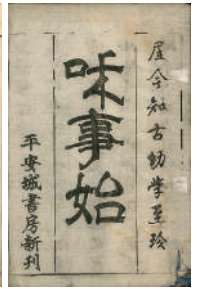 居今知古幼學至珍
咊事始
平安城書房新刊